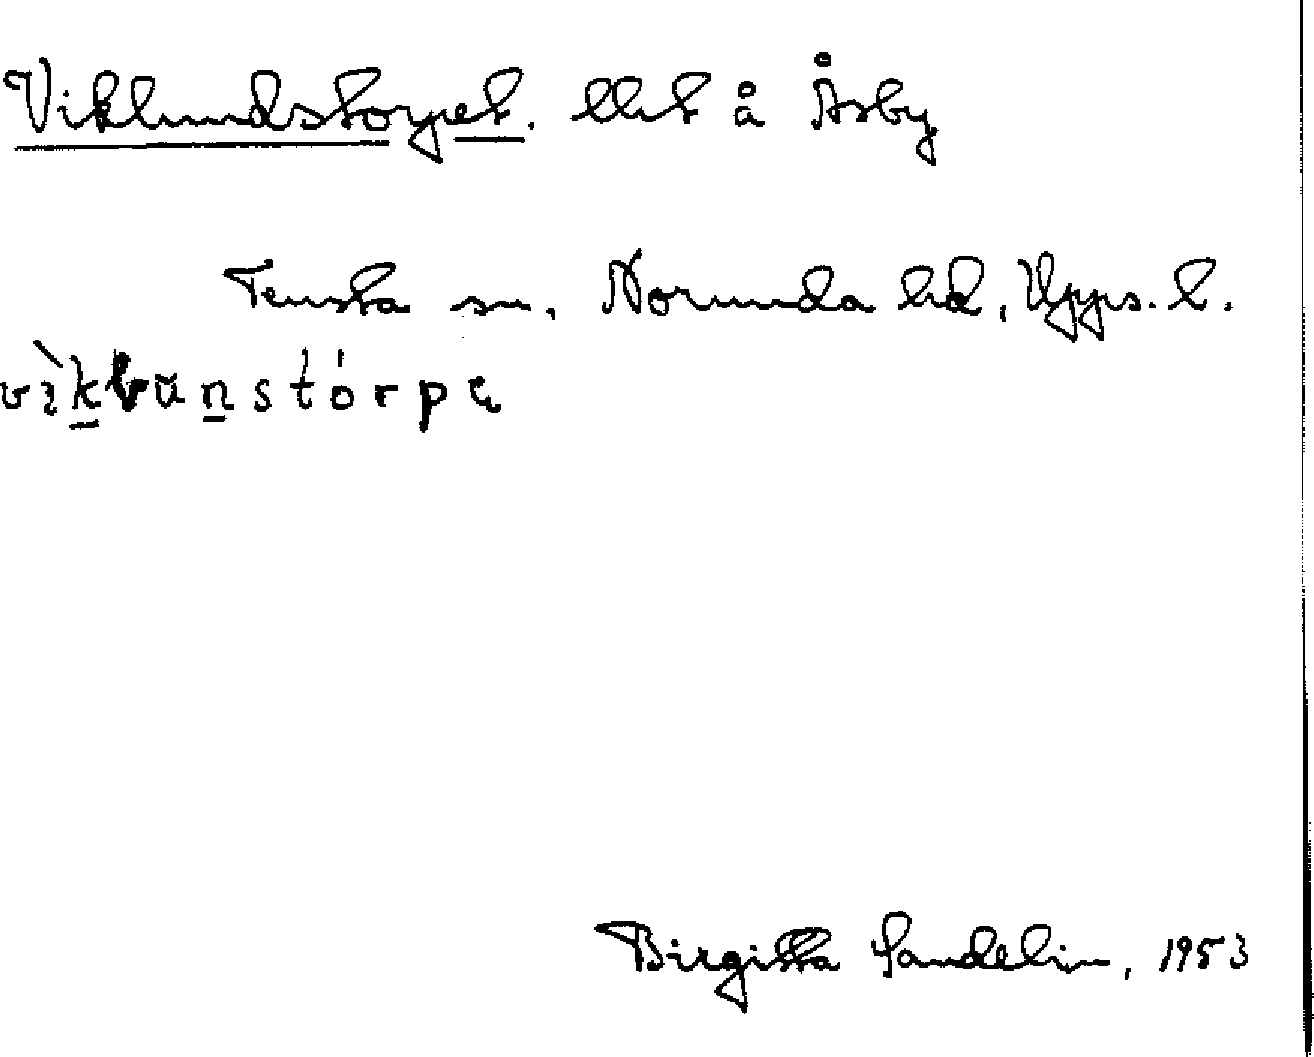 Viklundstorpet. lht å Åsby
Tensta sn, Norunda hd, Upps. l.
Birgitta Sandelin, 1953